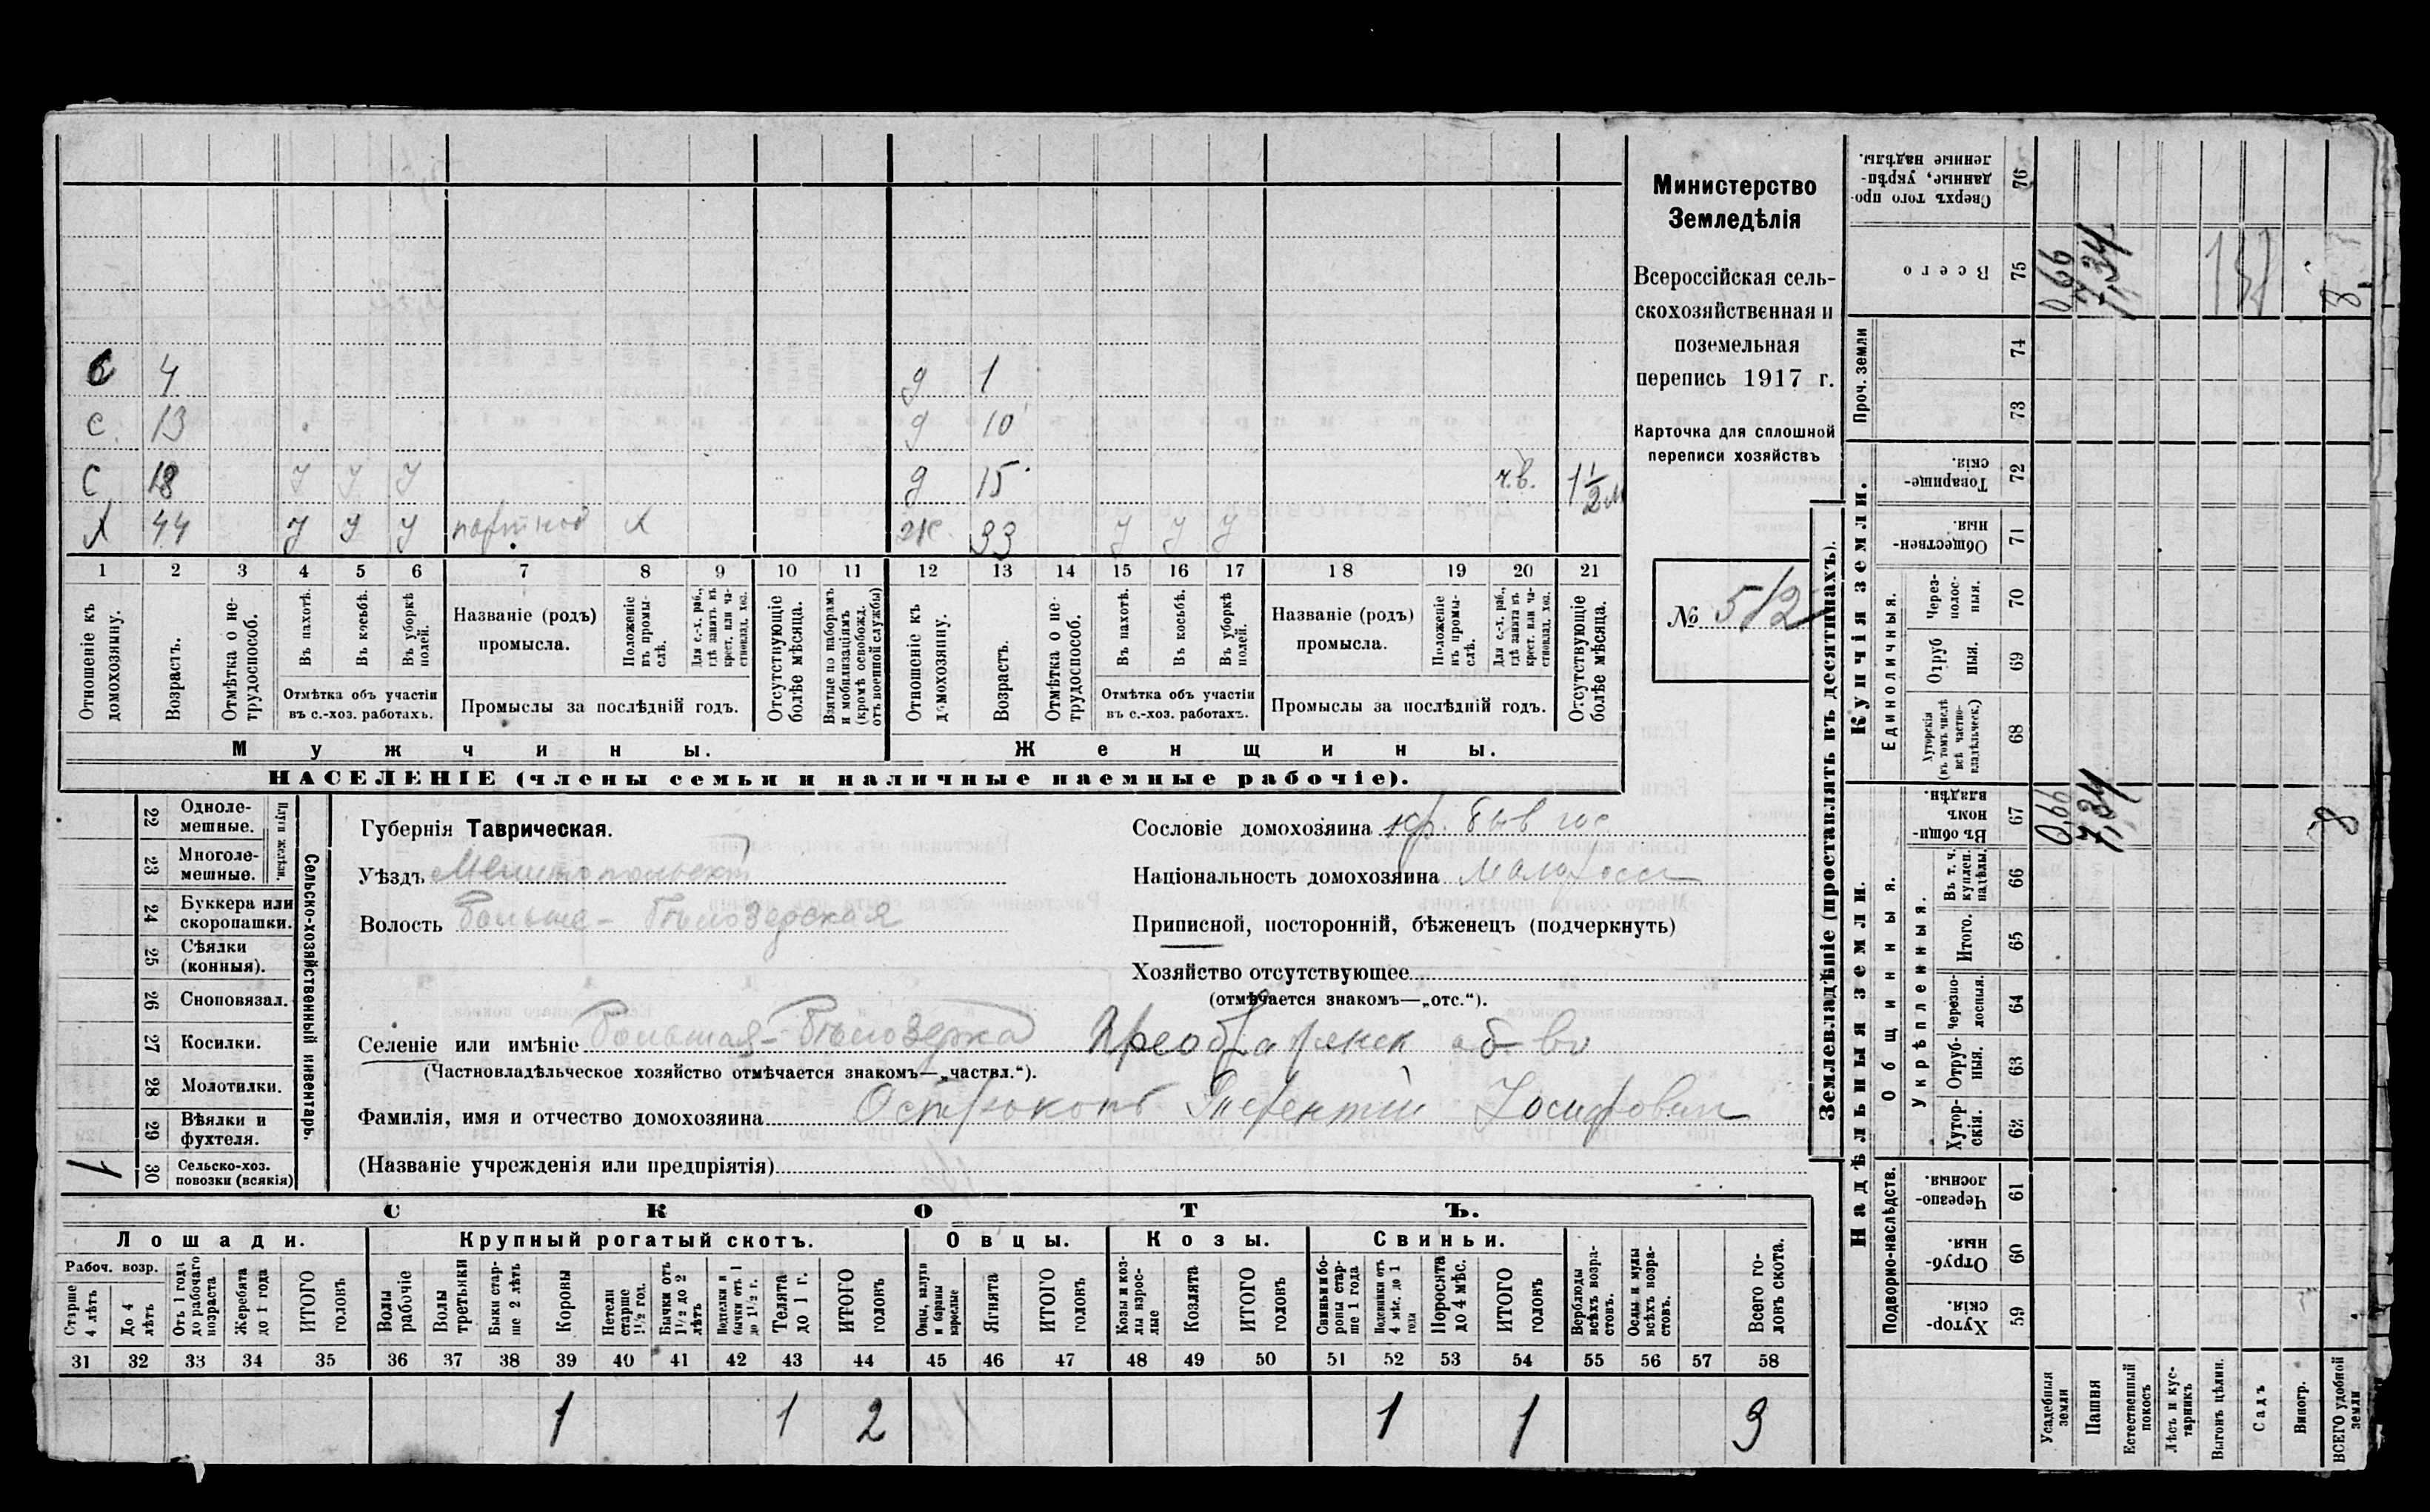 с 4 д 1
с 13 д 10
с 18 у у у д 15 ч.в. 1 1/2 м
х 44 у у у портной х ж 33 у у у
1 2 3 4 5 6 7 8 9 10 11 12 13 14 15 16 17 18 19 20 21
Отношеніе къ домохозяину.
Возрастъ.
Отмѣтка о нетрудоспособ.
Въ пахотѣ.
Въ косьбѣ.
Въ уборкѣ полей.
Отмѣтка объ участіи
въ с.-хоз. работахъ.
Названіе (родъ)
промысла.
Положеніе въ промыслѣ.
Для с.-х. раб., гдѣ занятъ въ крест. или частновлад. хоз.
Промыслы за послѣдній годъ.
Отсутствующіе болѣе мѣсяца.
Взятые по наборамъ и мобилизаціямъ (кромѣ освобожд. отъ военной службы)
Отношеніе къ домохозяину.
Возрастъ.
Отмѣтка о нетрудоспособ.
Въ пахотѣ.
Въ косьбѣ.
Въ уборкѣ полей.
Отмѣтка объ участіи
въ с.-хоз. работахъ.
Названіе (родъ)
промысла.
Положеніе въ промыслѣ.
Для с.-х. раб., гдѣ занята въ крест. или частновлад. хоз.
Промыслы за послѣдній годъ.
Отсутствующіе болѣе мѣсяца.
Мужчины. Женщины.
НАСЕЛЕНІЕ (члены семьи и наличные наемные рабочіе).
Министерство
Земледѣлія
Всероссійская сель-
скохозяйственная и
поземельная
перепись 1917 г.
Карточка для сплошной
переписи хозяйствъ
№ 512
Сельско-хозяйственный инвентарь.
Плуги желѣзн.
22 Одноле-
мешные.
23 Многоле-
мешные.
24 Буккера или
скоропашки.
25 Сѣялки
(конныя).
26 Сноповязал.
27 Косилки.
28 Молотилки.
29 Вѣялки и
фухтеля.
30 Сельско-хоз.
повозки (всякія)
1
Губернія Таврическая.
Уѣздъ Мелитопольскій
Волость Больше-Бѣлозерская
Сословіе домохозяина кр. быв гос
Національность домохозяина малоросс
Приписной, посторонній, бѣженец (подчеркнуть)
Хозяйство отсутствующее
(отмѣчается знакомъ—„отс.“).
Селеніе или имѣніе Большая-Бѣлозерка Преображенск об-во
(Частновладѣльческое хозяйство отмѣчается знакомъ—„частвл.“).
Фамилія, имя и отчество домохозяина Остроконь Терентій Іосифович
(Названіе учрежденія или предпріятія)
СКОТЪ.
Лошади. Крупный рогатый скотъ. Овцы. Козы. Свиньи.
Рабоч. возр.
Старше 4 лѣтъ
До 4 лѣтъ
Отъ 1 года до рабочаго возраста
Жеребята до 1 года
ИТОГО головъ
Волы рабочіе
Волы третьяки
Быки старше 2 лѣтъ
Коровы
Нетели старше 1½ год.
Бычки отъ 1½ до 2 лѣтъ
Подтелки и бычки отъ 1 до 1½ г.
Телята до 1 г.
ИТОГО головъ
Овцы, валухи и бараны взрослые
Ягнята
ИТОГО головъ
Козы и козлы взрослые
Козлята
ИТОГО головъ
Свиньи и боровы старше 1 года
Подсвинки отъ 4 мѣс. до 1 года
Поросята до 4 мѣс.
ИТОГО головъ
Верблюды всѣхъ возрастовъ.
Ослы и мулы всѣхъ возрастовъ.
Всего головъ скота.
31 32 33 34 35 36 37 38 39 40 41 42 43 44 45 46 47 48 49 50 51 52 53 54 55 56 57 58
1 1 2 1 1 3
Землевладѣніе (проставлять въ десятинахъ).
Надѣльныя земли. Купчія земли. Проч. земли
Подворно-наслѣдств. Общинныя. Укрѣпленныя. Единоличныя.
Сверхъ того проданные, укрѣпленные надѣлы. 76
Всего 75 0,66 7,34 8
74
73
Товарищескія. 72
Общественныя. 71
Черезполосныя. 70
Отрубныя. 69
Хуторскія (въ томъ числѣ всѣ частновладѣльческ.) 68
Въ общинномъ владѣн. 67 0,66 7,34 8
Въ т. ч. куплен. надѣлы. 66
Итого. 65
Черезполосныя. 64
Отрубныя. 63
Хуторскія. 62
Черезполосныя. 61
Отрубныя. 60
Хуторскія. 59
Усадебныя земли
Пашня
Естественный покосъ
Лѣсъ и кустарникъ
Выгонъ цѣлин.
Садъ
Виногр.
ВСЕГО удобной земли